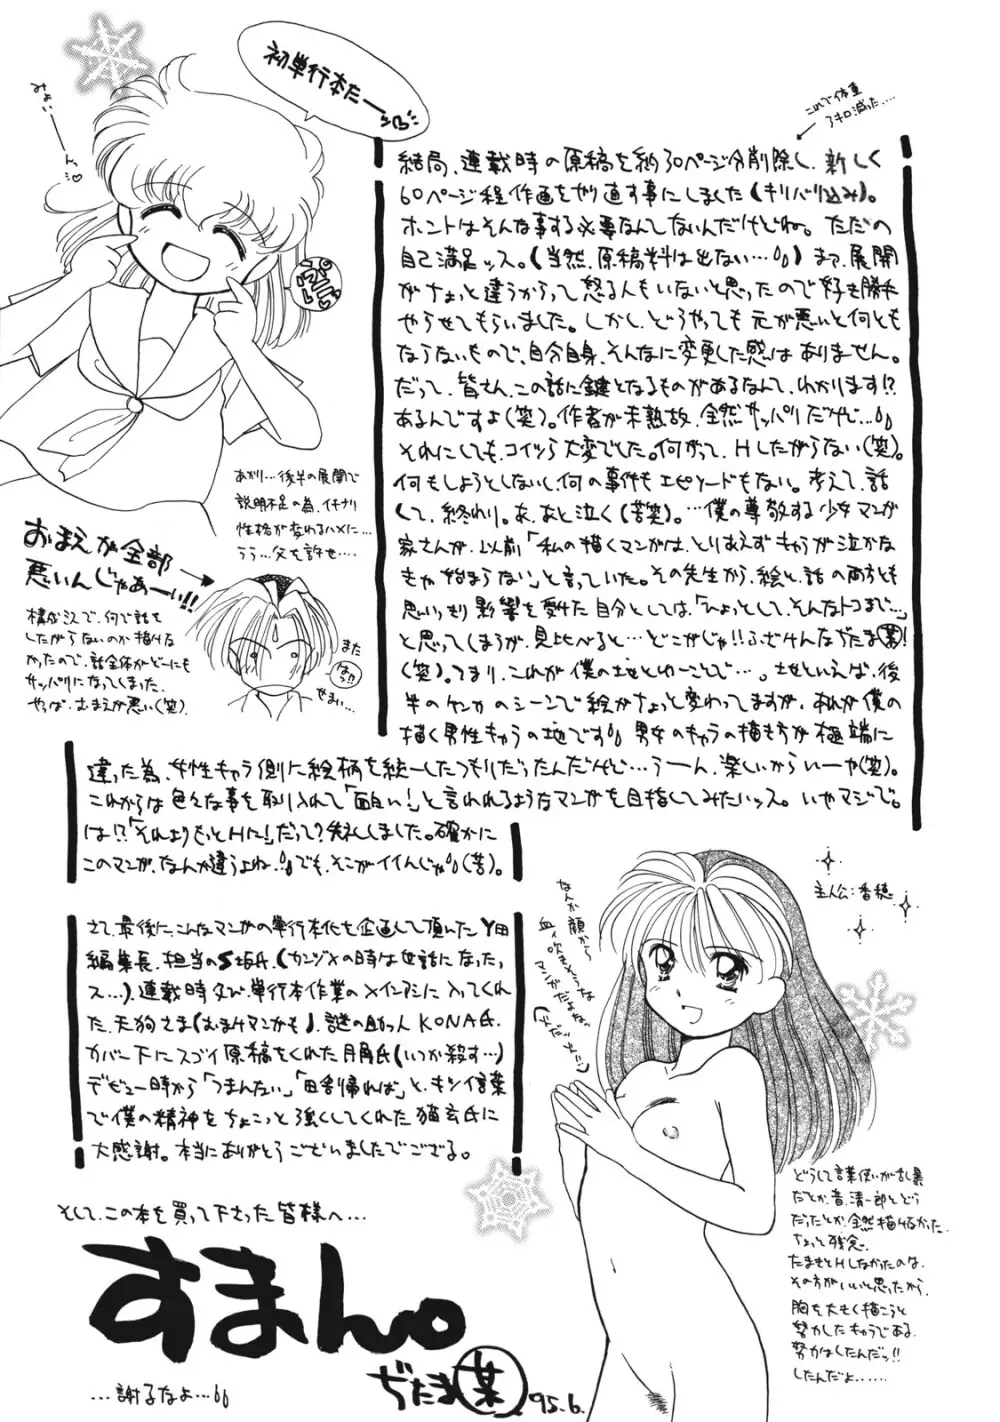 初単行本だー
みょい
ーんっ
ぷにっ
これで体重
3キロ減った....
結局、連載時の原稿を約30ページ分削除し、新しく
60ページ程作画をやり直す事にしました(キリバリ込み)。
ホントはそんな事する必要なんてないんだけどね。ただの
自己満足ッス。(当然、原稿料は出ない…。)まで、展開
がちょっと違うからって怒る人もいないと思ったので好き勝手
やらせてもらいました。しかし、どうやっても元が悪いと何とも
ならないもので、自分自身、そんなに変更した感はありません。
だって、皆さん、この話に鍵となるものがあるなんて、わかります!?
あるんですよ(笑)。作者が未熟故、全然サッパリだけど…。
それにしても、コイツら大変でした。何がって、Hしたがらない(笑)。
何もしようとしないし、何の事件もエピソードもない。考えて、話
して、終わり。あ、あと泣く(苦笑)。…僕の尊敬する少女マンガ
家さんが、以前「私の描くマンガは、とりあえずキャラが泣かな
きゃ始まらない」と言っていた。その先生から、絵と、話の両方とも
思いっきり影響を受けた自分としては、「ひょっとして、そんなトコまで…」
と思ってしまうが、見比べると…どこがじゃ!!ふざけんなぢたま某!
(笑)。つまり、これが僕の地とゆーことで…。地といえば、後
半のケンカのシーンで絵がちょっと変わってますが、あれが僕の
描く男性キャラの地です。男女のキャラの描き方が極端に
違った為、女性キャラ側に絵柄を統一したつもりだったんだけど…うーん、楽しいからいーや(笑)。
これからは色々な事を取り入れて「面白い!」と言われるようなマンガを目指してみたいッス。いやマジで。
は!?「それよりもっとHに!」だって?失礼しました。確かに
このマンガ、なんか違うよね。でも、そこがイイんじゃ。(苦)。
あかり…後半の展開で
説明不足の為、イキナリ
性格が変わるハメに…
うう…父を許せ…
おまえが全部
悪いんじゃあーい!!
構成ミスで、何で話を
したがらないのか描けな
かったので、話全体がどーにも
サッパリになってしまった。
やっぱ、おまえが悪い(笑)。
また
はや
せまい…
さて、最後に、こんなマンガの単行本化を企画して頂いたY田
編集長、担当のS坂氏、(カンヅメの時は世話になったっ
ス…)、連載時及び、単行本作業のメインアシに入ってくれ
た、天狗さま(おまけマンガも)、謎の助っ人KONA氏、
カバー下にスゴイ原稿をくれた月角氏(いつか殺す…)
デビュー時から「つまんない」「田舎帰れば」と、キツイ言葉
で僕の精神をちょこっと強くしてくれた猫玄氏に
大感謝。本当にありがとうございましたでござる。
主人公:香穂
なんか顔から
血ィ吹きそうな
マンガだよな。
どうして言葉使いが乱暴
だとか、昔、清一郎とどう
だったとか、全然描けなかった。
ちょっと残念。
たまきとHしなかったのは、
その方がいいと思ったから。
胸を大きく描こうと
努力したキャラである。
努力はしたんだッ!!
したんだよ......
そして、この本を買って下さった皆様へ…
すまん。
ぢたま某
'95.6.
…謝るなよ…